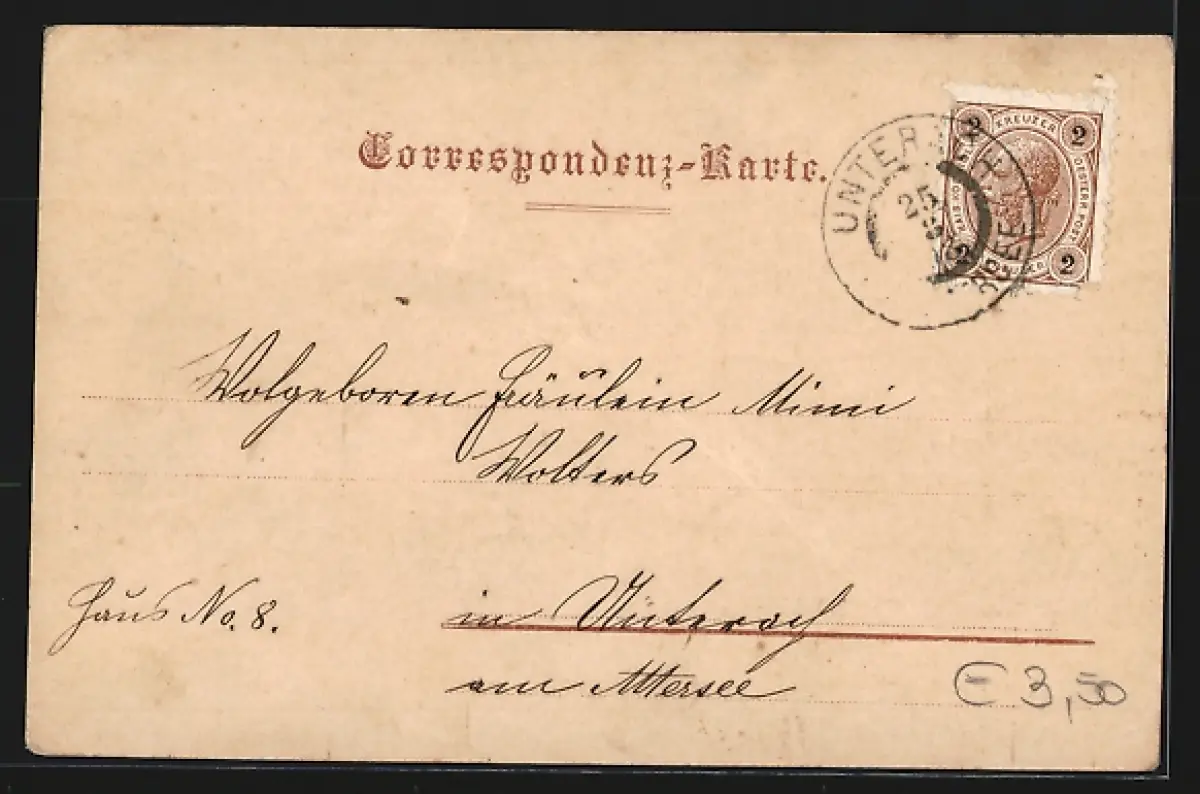 Correspondenz-Karte.
2 KREUZER 2
OESTERR. POST.
2 2
UNTERACH
25
Wolgeboren Fräulein Mimi
Wolters
Haus No. 8.
in Unterach
am Attersee
€ 3,50